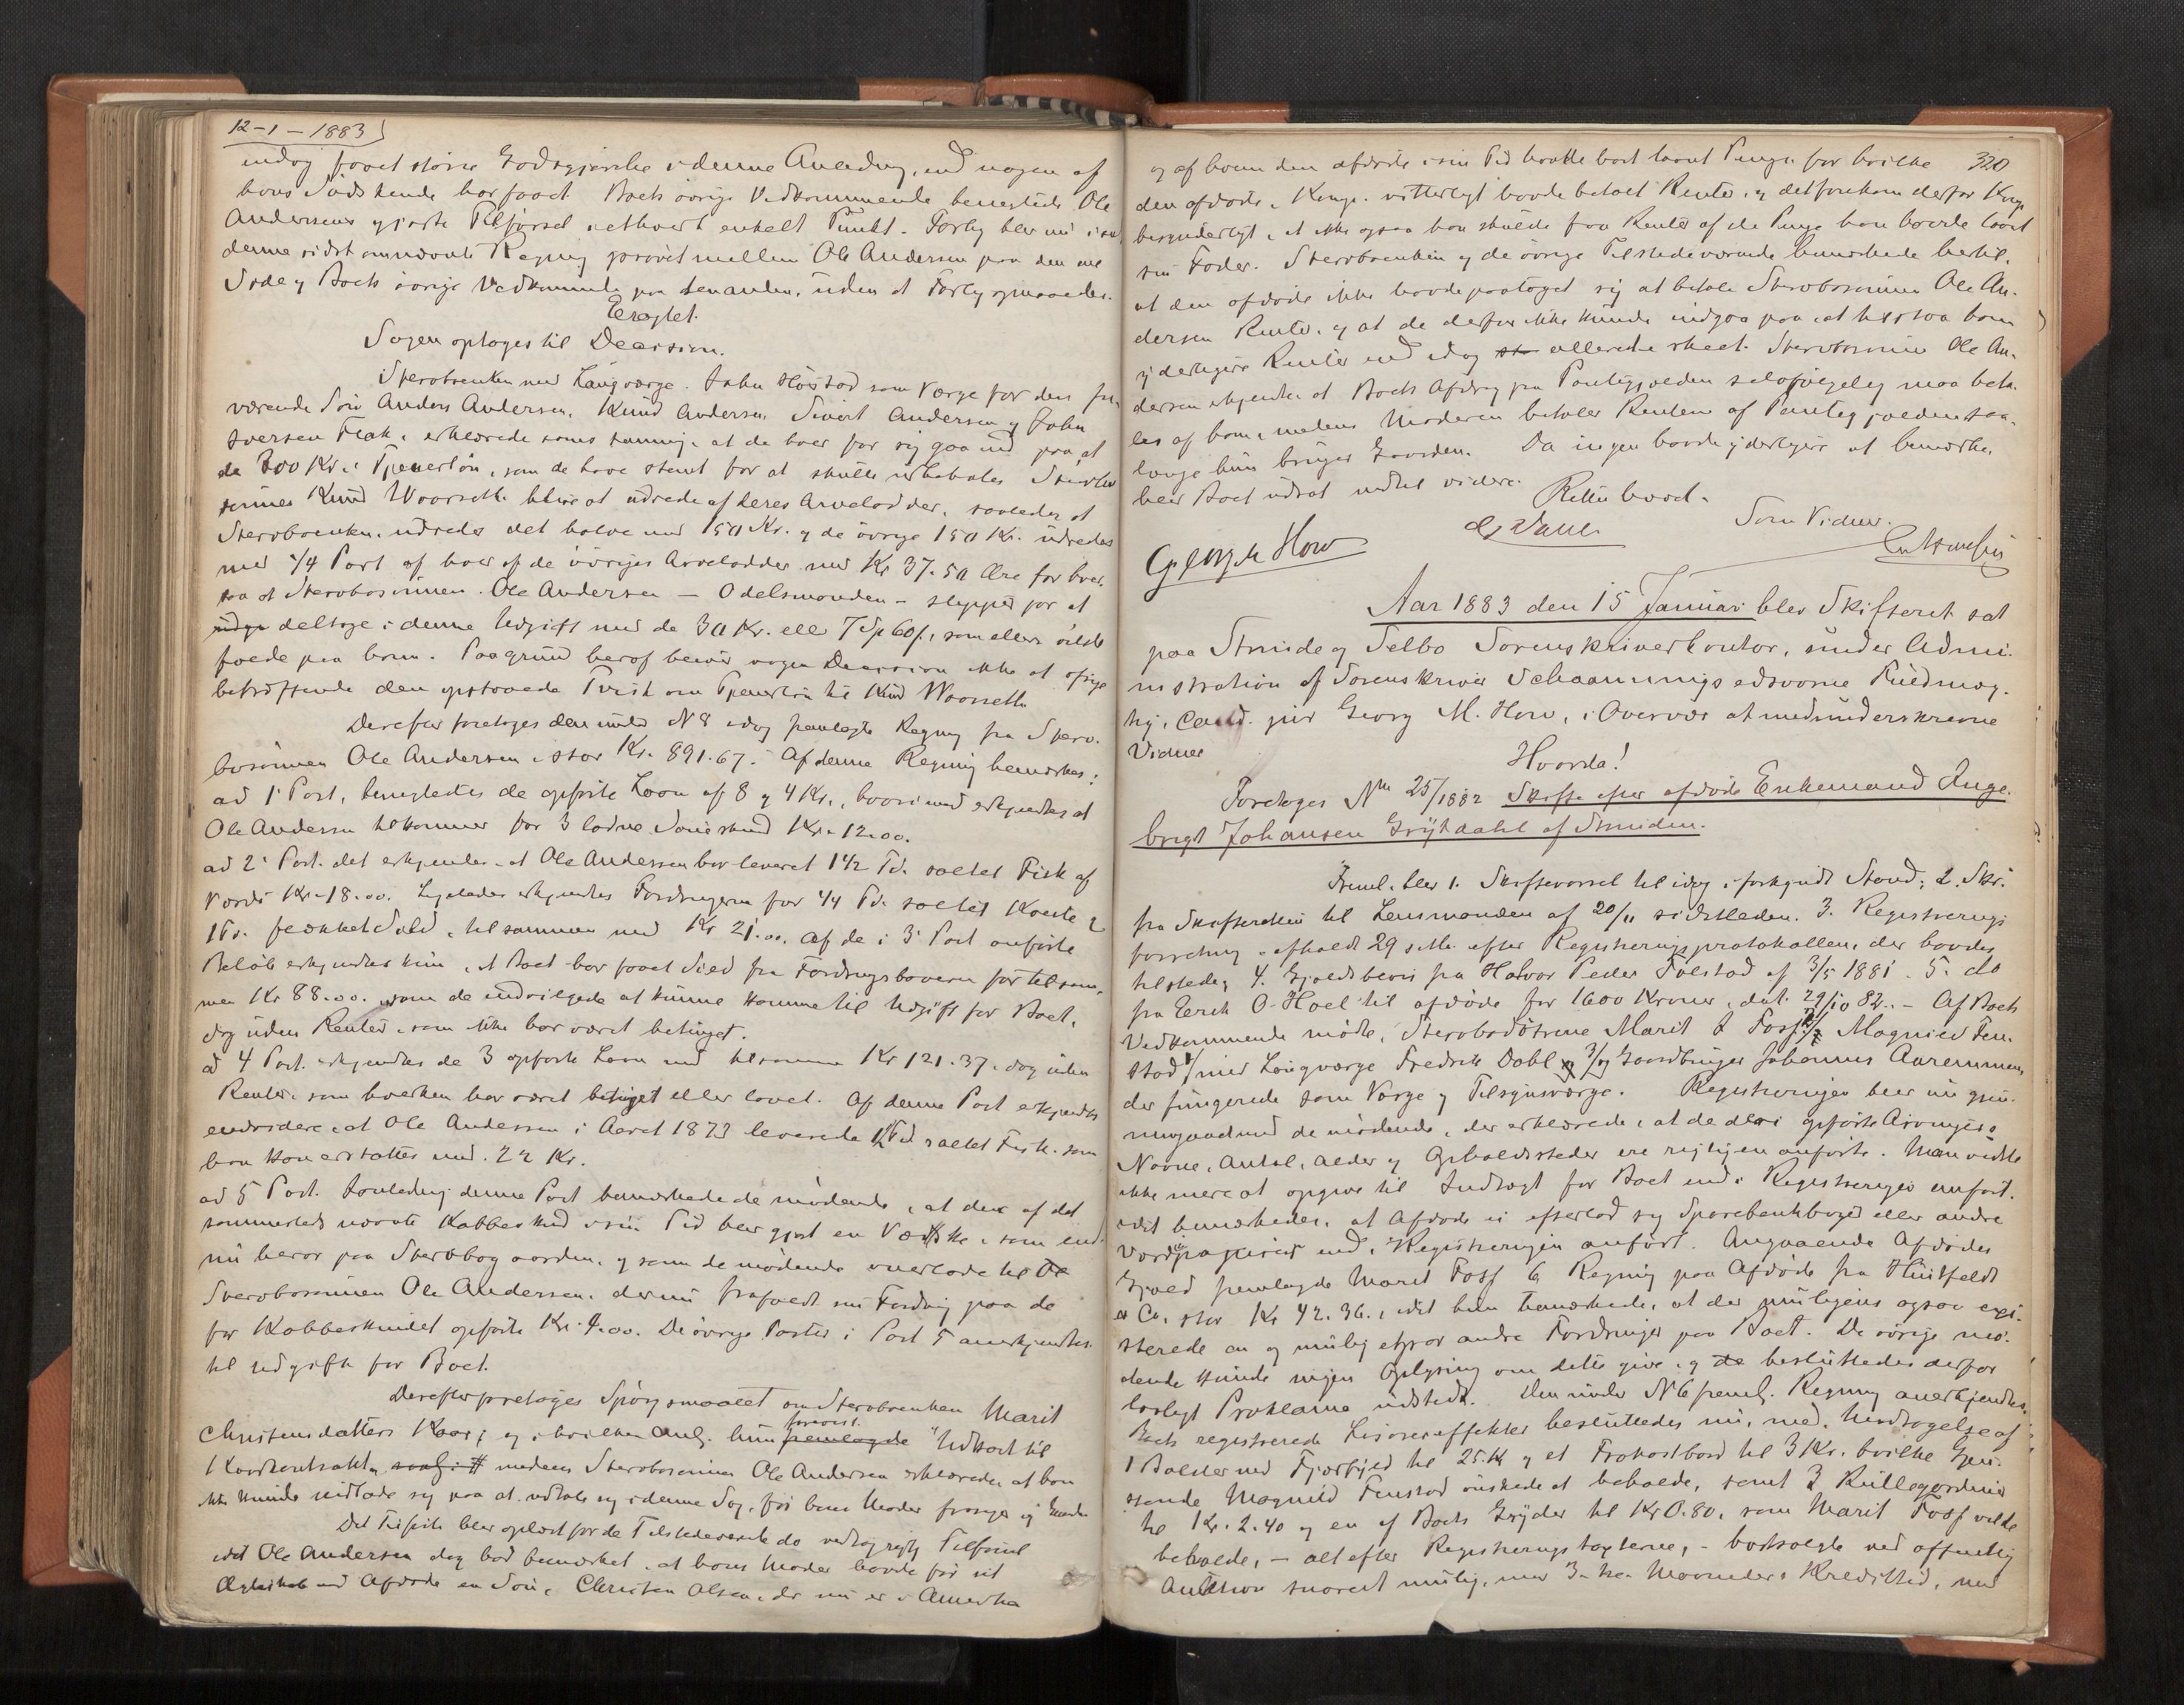 12-1-1883
endog faaet større Godtgjørelse i denne Anledng, end nogen af
hans Sødskende har faaet. Boets øvrige Vedkommende benegtede Ole
Andersens gjorte Tilførsel i ethvert enkelt Punkt. Forlig blev nu i
denne sidst omnævnte Regning prøvet mellem Ole Andersen paa den ene
Side og Boets øvrige Vedkommende paa denanden, uden at Forlig opnaaedes.
Eragtet.
Sagen optages til Decision.
Stervboenken med Laugværge. John Høistad som Værge for den fra
værende Søn Anders Andersen, Knud Andersen, Sivert Andersen og John
Iversen Flak, erklærede samstemmig, at de hver for sig gaa ind paa, at
de 300 Kr. i Tjenerløn, som de have stemt for at skulle udbetales Stervbo
sønnen Knud Waarseth blive at udrede af deres Arvelodder, saaledes at
Stervboenken udreder det halve med 150 Kr. og de øvrige 150 Kr. udredes
med 1/4 Part af hver af de øvriges Arvelodder med Kr 37.50 Øre for hver,
saa at Stervbosønnen Ole Andersen - Odelsmanden - slipper for at
deltage i denne Udgift med de 30 Kr. eller 7 Sp 60 s, som ellers vilde
falde paa ham. Paa Grund heraf bliver nogen Decision ikke at afsige
betræffende den opstaaede Tvist om Tjenerløn til Knud Waarseth
Derefter foretoges den under N 8 idag fremlagte Regning fra Sterv-
bosønnen Ole Andersen, stor Kr. 891.67. Af denne Regning bemærkes:
ad 1 Post, benegtedes de opførte Laan af 8 og 4 Kr., hvorimod erkjendtes at
Ole Andersen tilkommer for 3 lodne Saueskind Kr. 12.00.
ad 2 Post. det erkjendes, at Ole Andersen har leveret 1 1/2 Td. saltet Fisk af
Værdi Kr. 18.00. Ligeledes erkjendtes Fordringerne for 1/4 Td. saltet Kveite &
1 Td. Sild, tilsammen med Kr 21.00. Af de i 3 Post anførte
Beløb erkjendtes kun, at Boet har faaet Sild fra Fordringshaveren for tilsam-
men Kr 88.00. som de indvilgede at kunne komme til Udgift for Boet,
dog uden Renter, som ikke har været betinget.
ad 4 Post. erkjendtes de 3 opførte Laan med tilsammen Kr 121.37. dog uden
Renter, som hverken har været betinget eller lovet. Af denne Post erkjendtes
endvidere, at Ole Andersen i Aaret 1873 leverede 1/2 Td saltet Fisk, som
han kan erstattes med 22 Kr.
ad 5 Post. I anledng denne Post bemærkede de mødende, at der af det
sammesteds nævnte Kobbeskind i sin Tid blev gjort en Væske, som end
nu beror paa Stervbogaarden, og som de mødende overlode til
Stervbosønnen Ole Andersen, der nu frafaldt sin Fordring paa de
for Kobbeskindet opførte Kr. 4.00. De øvrige Poster i Post 5 anerkjendtes
til Udgift for Boet.
Derefter foretoges Spørgsmaalet om Stervboenken Marit
Christensdatters Kaar, og i hvilken Anl. hun fremlagde forevist "Udkast til
Kaarkontrakt", medens Stervbosønnen Ole Andersen erklærede at han
ikke kunde indlade sig paa at udtale sig i denne Sag, før hans Moder fraveg Gaarden
Det Tilførte blev oplæst for de Tilstedeværende do vedtog rigtg Tilført
idet Ole Andersen dog bad bemærket, at hans Moder havde før sit
Ægteskab med Afdøde en Søn, Christen Olsen, der nu er i Amerika
320
og af hvem den afdøde i sin Tid havde laant Penge for hvilke
den afdøde, Komp. vitterligt havde betalt Renter, og det forekom derfor Komp.
besynderligt, at ikke ogsaa han skulde faa Renter af de Penge han havde laant
sin Fader. Stervboenken og de øvrige Tilstedeværende bemærkede hertil,
at den afdøde ikke havde paataget sig at betale Stervbosønnen Ole An-
dersen Renter, og at de derfor ikke kunde indgaa paa, at tilstaa ham
yderligere Renter end idag allerede skeet. Stervbosønnen Ole An-
dersen erkjendte at Boets Afdrag paa Pantegjælden selvfølgelig maa beta-
les af ham, medens Moderen betaler Renten af Pantegjælden saa-
længe hun bruger Gaarden. Da ingen havde yderligere at bemærke,
blev Boet udsat indtil videre.
Retten hævet.
Som Vidner.
George How
Aar 1883 den 15 Januar blev Skifteret sat
paa Strinde og Selbo Sorenskriverkontor, under Admi-
nistration af Sorenskriver Schaannings edsvorne Fuldmæg-
tig, Cand. jur Georg M. How, i Overvær af medunderskrevne
Vidner
Hvorda!
Foretoges No 25/1882 Skifte efter afdøde Enkemand Inge-
brigt Johansen Grytdahl af Strinden.
Freml. blev 1. Skiftevarsel til idag i forkyndt Stand; 2. Skr.
fra Skifteretten til Lensmanden af 20/11 sidstleden. 3. Registrerings
forretning afholdt 29 s. M. efter Registreringsprotokollen, der havdes
tilstede; 4. Gjeldsbevis fra Halvor Peder Tølstad af 3/5 1881. 5. do
fra Erik O. Hoel til afdøde for 1600 Kroner, dat. 29/10 82. - Af Boets
Vedkommende mødte, Stervbodøtrene Marit I Foss Magnild Fen-
stad med Laugværge Fredrik Dahl og Gaardbruger Johannes Aaremmen,
der fungerede som Værge og Tilsynsværge. Registreringen blev nu gjen-
nemgaaed med de mødende, der erklærede, at de deri opførte Arvingers
Navne, Antal, Alder og Opholdssteder ere rigtigen anførte. Man vidste
ikke mere at opgive til Indtægt for Boet end i Registreringen anført.
idet bemærkedes, at Afdøde ei efterlod sig Sparebankbøger eller andre
Værdipapirer end i Registreringen anført. Angaaende Afdødes
Gjæld fremlagde Marit Foss 6, Regning paa Afdøde fra Huitfeldt
& Co, stor Kr 42.36., idet hun bemærkede, at der muligens ogsaa exi-
sterede en og mulig et par andre Fordringer paa Boet. De øvrige mø-
dende kunde ingen Oplysning om dette give, og besluttedes derfor
lovligt Proklama udstedt. Den under N 6 freml. Regning anerkjendtes.
Boets registrerede Løsøreeffekter besluttedes nu, med Undtagelse af
1 Bolster med Fjærfyld til 25 Kr og et Frokostbord til 3 Kr. hvilke Gjen-
stande Magnild Fenstad ønskede at beholde, samt 3 Rullegardiner
til Kr. 2.40 og en af Boets Gryder til Kr 0.80, som Marit Foss vilde
beholde, - alt efter Registreringstaxterne, - bortsolgte ved offentlig
Auktion snarest mulig, med 3 - tre Maaneders Kredittid, med